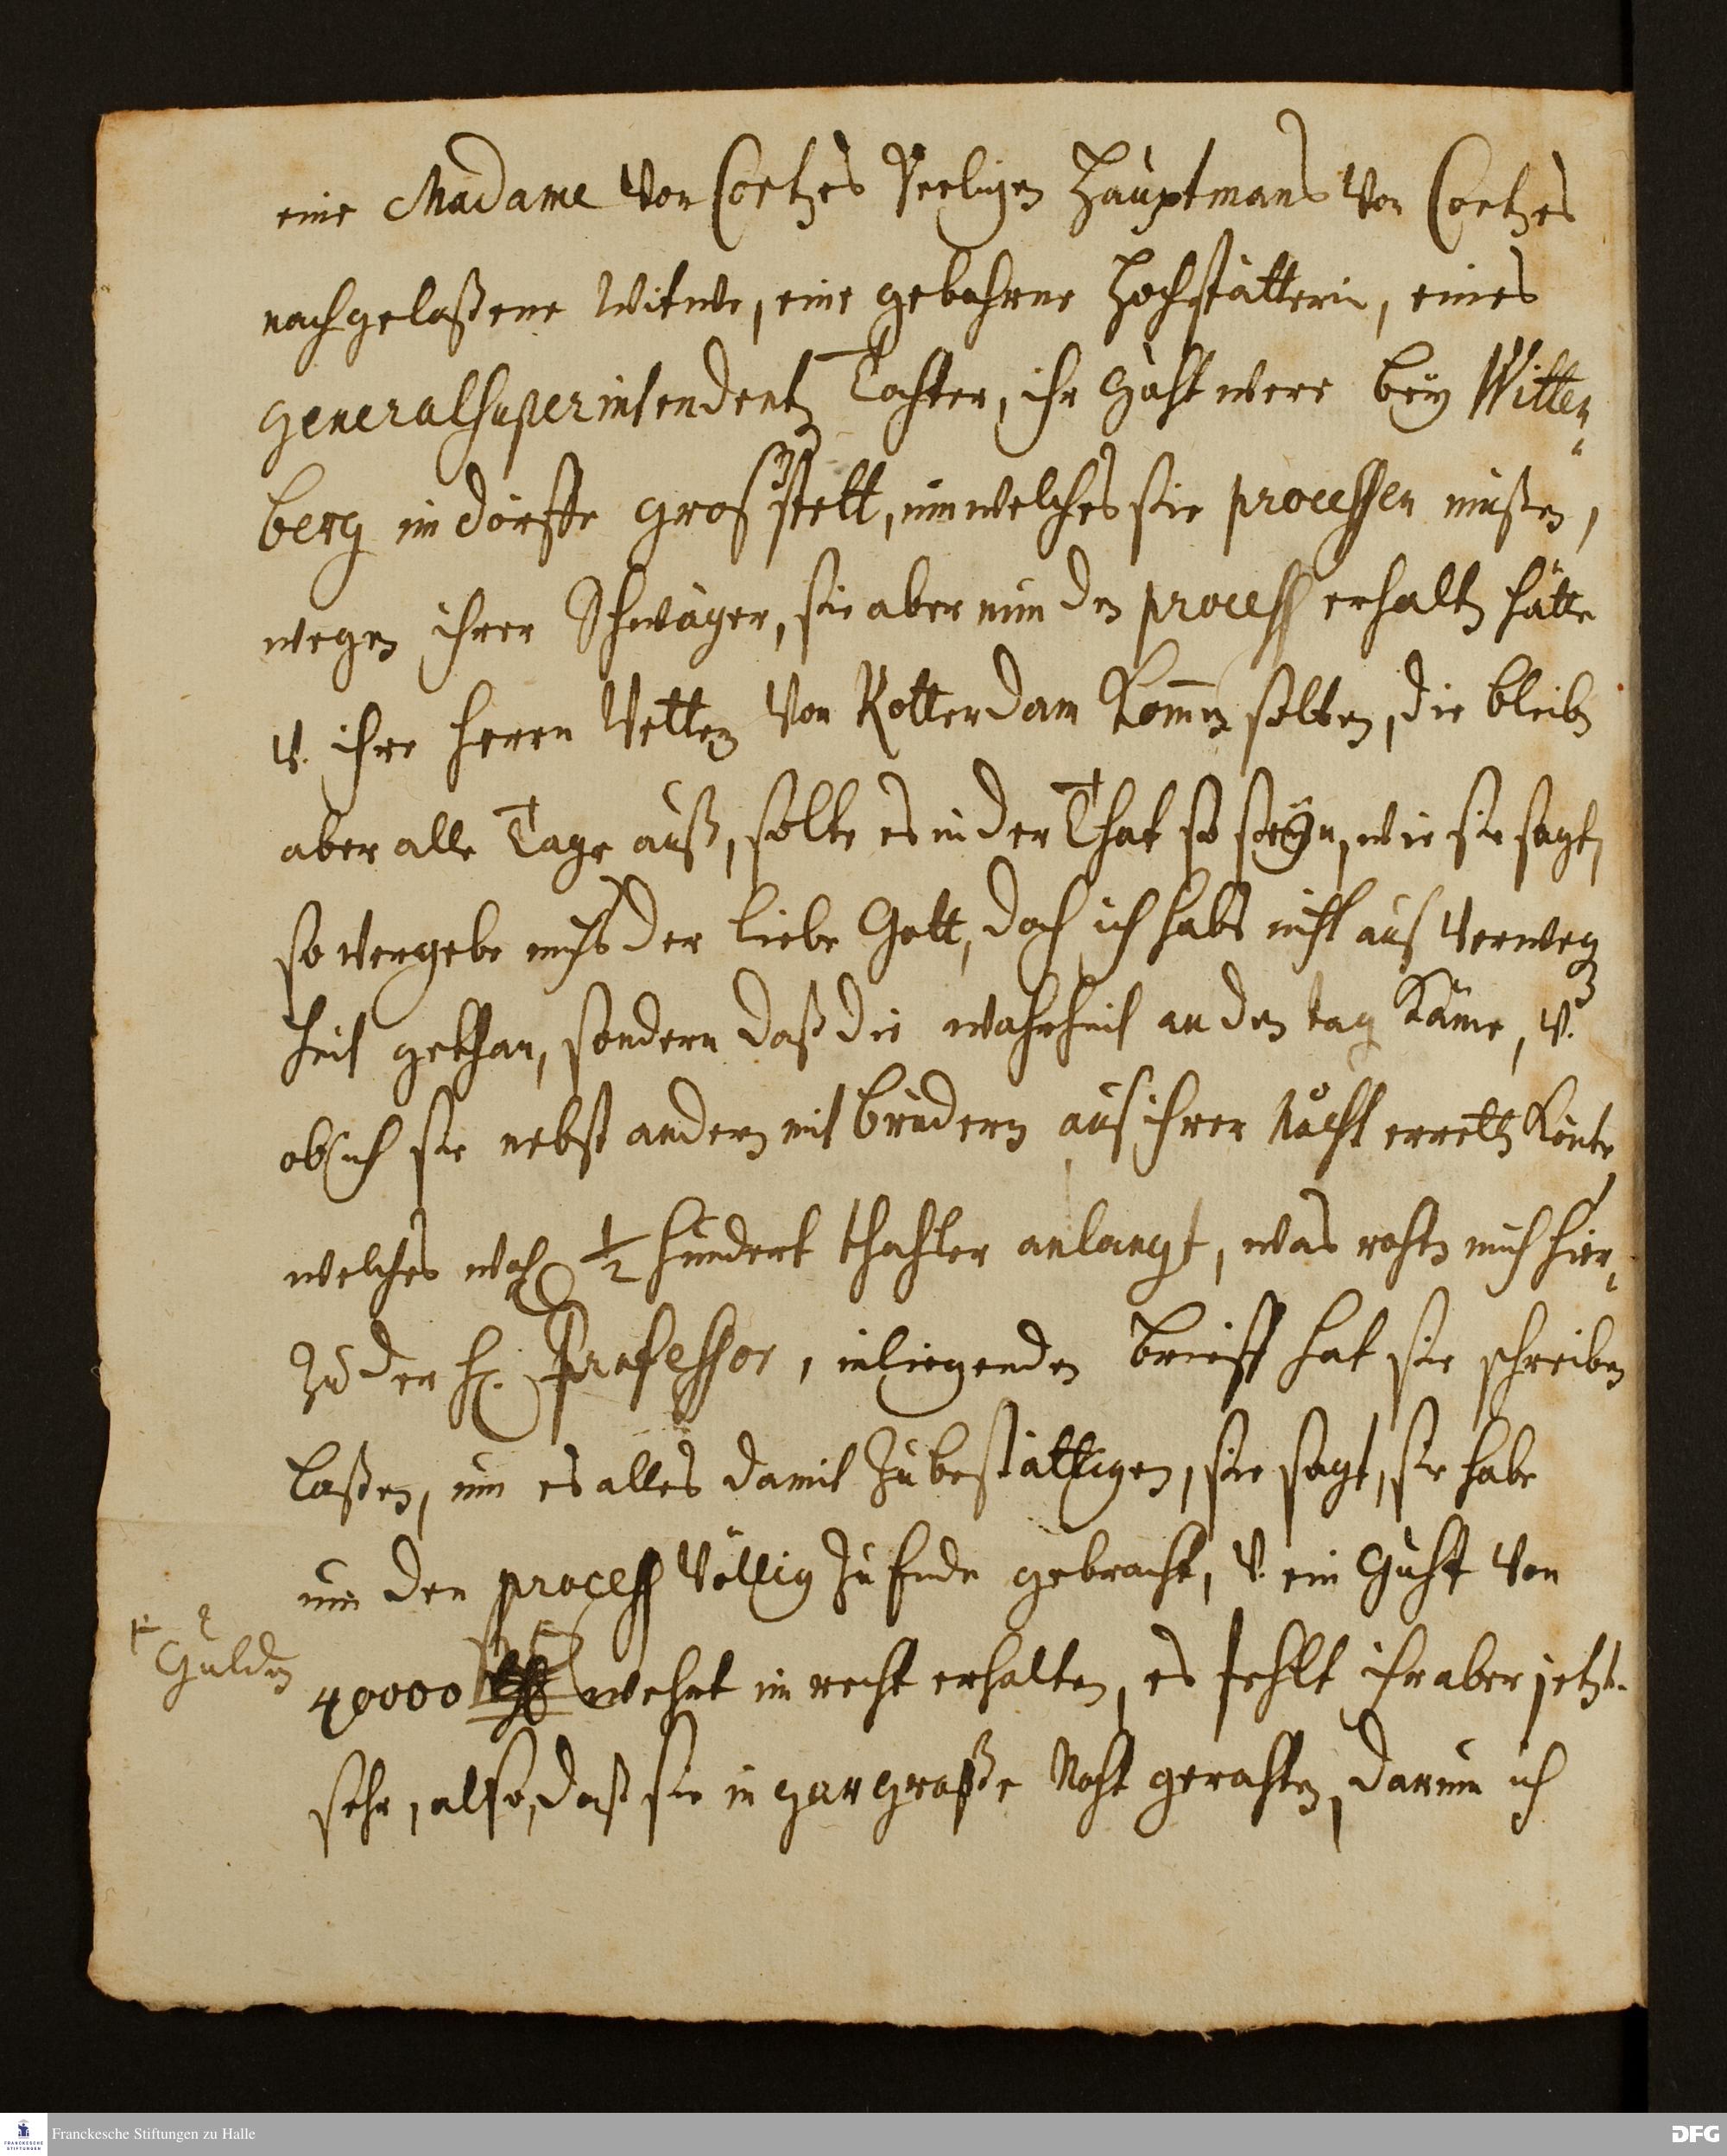 eine Madame von Coetzes Seeligen Hauptmans von Coetzes
nachgelaßene Witwe, eine gebohrne Hochstätterin, eines
Generalsuperintendentz Tochter, ihr Guht were bey Witten-
berg im dorffe gros stett, um welches sie processen müßen,
wegen ihrer Schwäger, sie aber nun den process erhalten hätte
v. ihre herrn Vettern von Rotterdam Kommen solten, die bleiben
aber alle Tage auß, solte es in der That so seyn, wie sie sagt,
so vergebe mihrs der liebe Gott, doch ich habs nicht aus verwegen
heit gethan, sondern daß die wahrheit an den tag Käme, v.
ob ich sie nebst andern mit brüdern aus ihrer Noht erretten Könte,
welches wohl ½ hundert thahler anlangt, was rahten mich hier-
zu der H. Professor, inliegenden brieff hat sie schreiben
laßen, um es alles damit zu bestättigen, sie sagt, sie habe
nun den process völlig zu Ende gebracht, v. ein Guht von
Gulden
40000 wehrt im recht erhalten, es fehlt ihr aber jetzt
sehr, also, daß sie in gar große Noht gerahten, darum ich
Franckesche Stiftungen zu Halle
DFG